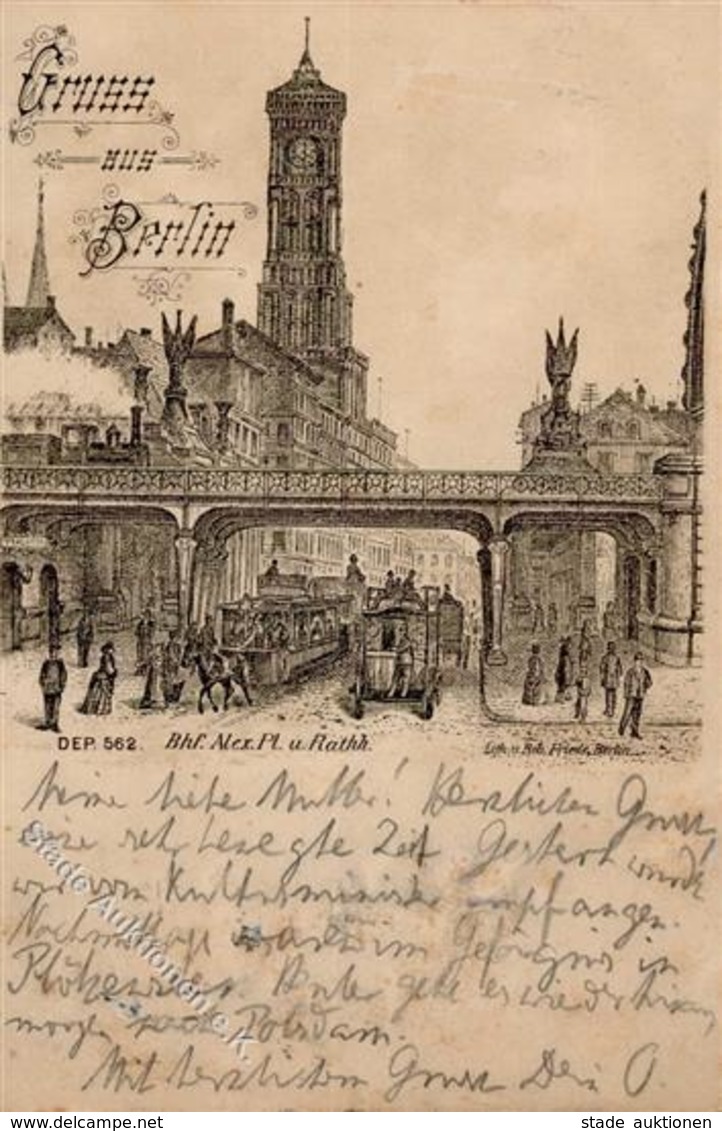 Gruss
aus
Berlin
DEP. 562. Bhf. Alex. Pl. u. Rathh. Lith. v. Rob. Friede, Berlin
Meine liebe Mutter! Herzlichen Gruss,
eine sehr bewegte Zeit Gestern wurde
wir vom Kultusminister empfangen.
Nachmittags waren wir im Gefängnis in
Plötzensee. Heute geht es wieder hin,
morgen nach Potsdam.
Mit herzlichem Gruss Dein O.
Stade Auktionen e.K.
stade auktionen